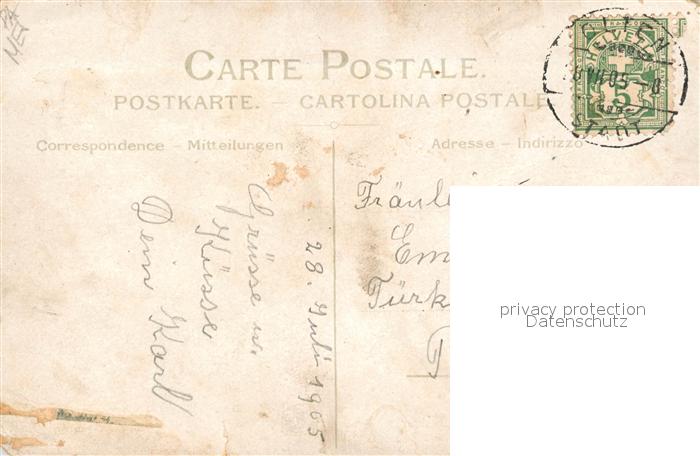 CARTE POSTALE.
POSTKARTE. – CARTOLINA POSTALE
Correspondence – Mitteilungen
Adresse – Indirizzo
HELVETIA
5
STADT
28. Juli 1905
Grüsse u.
Küsse
Dein Karl
Fräul
Em
Türk
privacy protection
Datenschutz